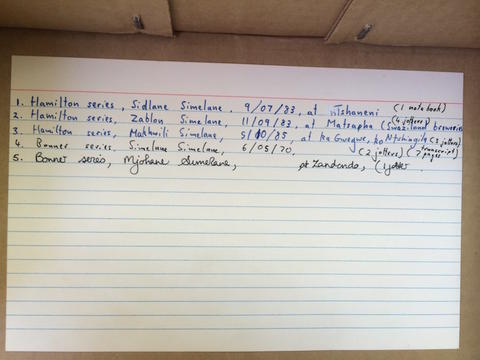 1. Hamilton series, Sidlane Simelane, 9/07/83, at (1 notebook)
2. Hamilton series, Zablon Simelane, 11/09/83, at Matsapha (4 jotters) (Swaziland breweries
3. Hamilton series, Makhwili Simelane, 5/10/85, at ka Gwegwe, ko (3 jotters)
4. Bonner series, Simelane Simelane, 6/05/70, (2 jotters) (7 transcript pages)
5. Bonner series, Mjohane Simelane, at Zandondo,